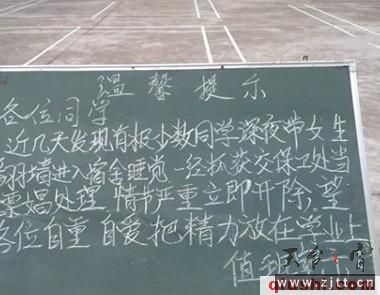 温馨提示
各位同学
近几天发现有极少数同学深夜带女生
翻墙进入宿舍睡觉一经抓获交保卫处当
嫖娼处理 情节严重立即开除,望
各位自重 自爱把精力放在学业上
值班室
www.zjtt.cn